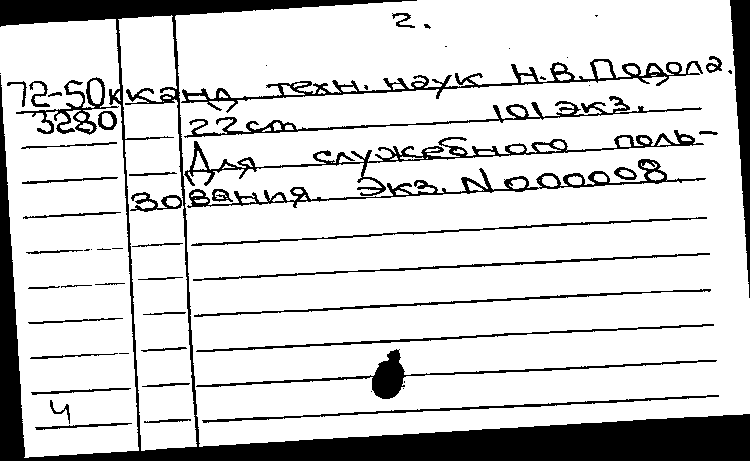 2.
72-50к канд. техн. наук Н.В. Подола.
3280 22cm 101 экз.
Для служебного поль-
зования. Экз. N 000008
4